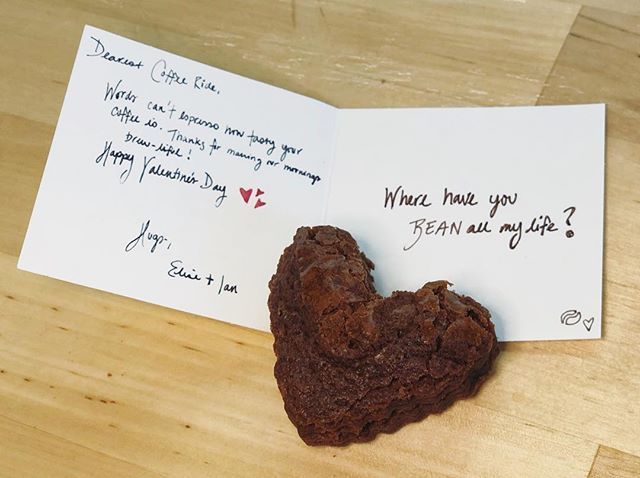 Dearest Coffee Ride,
Words can't espresso how tasty your
coffee is. Thanks for making our mornings
brew-tiful!
Happy Valentine's Day
Hugs,
Elise + Ian
Where have you
BEAN all my life?